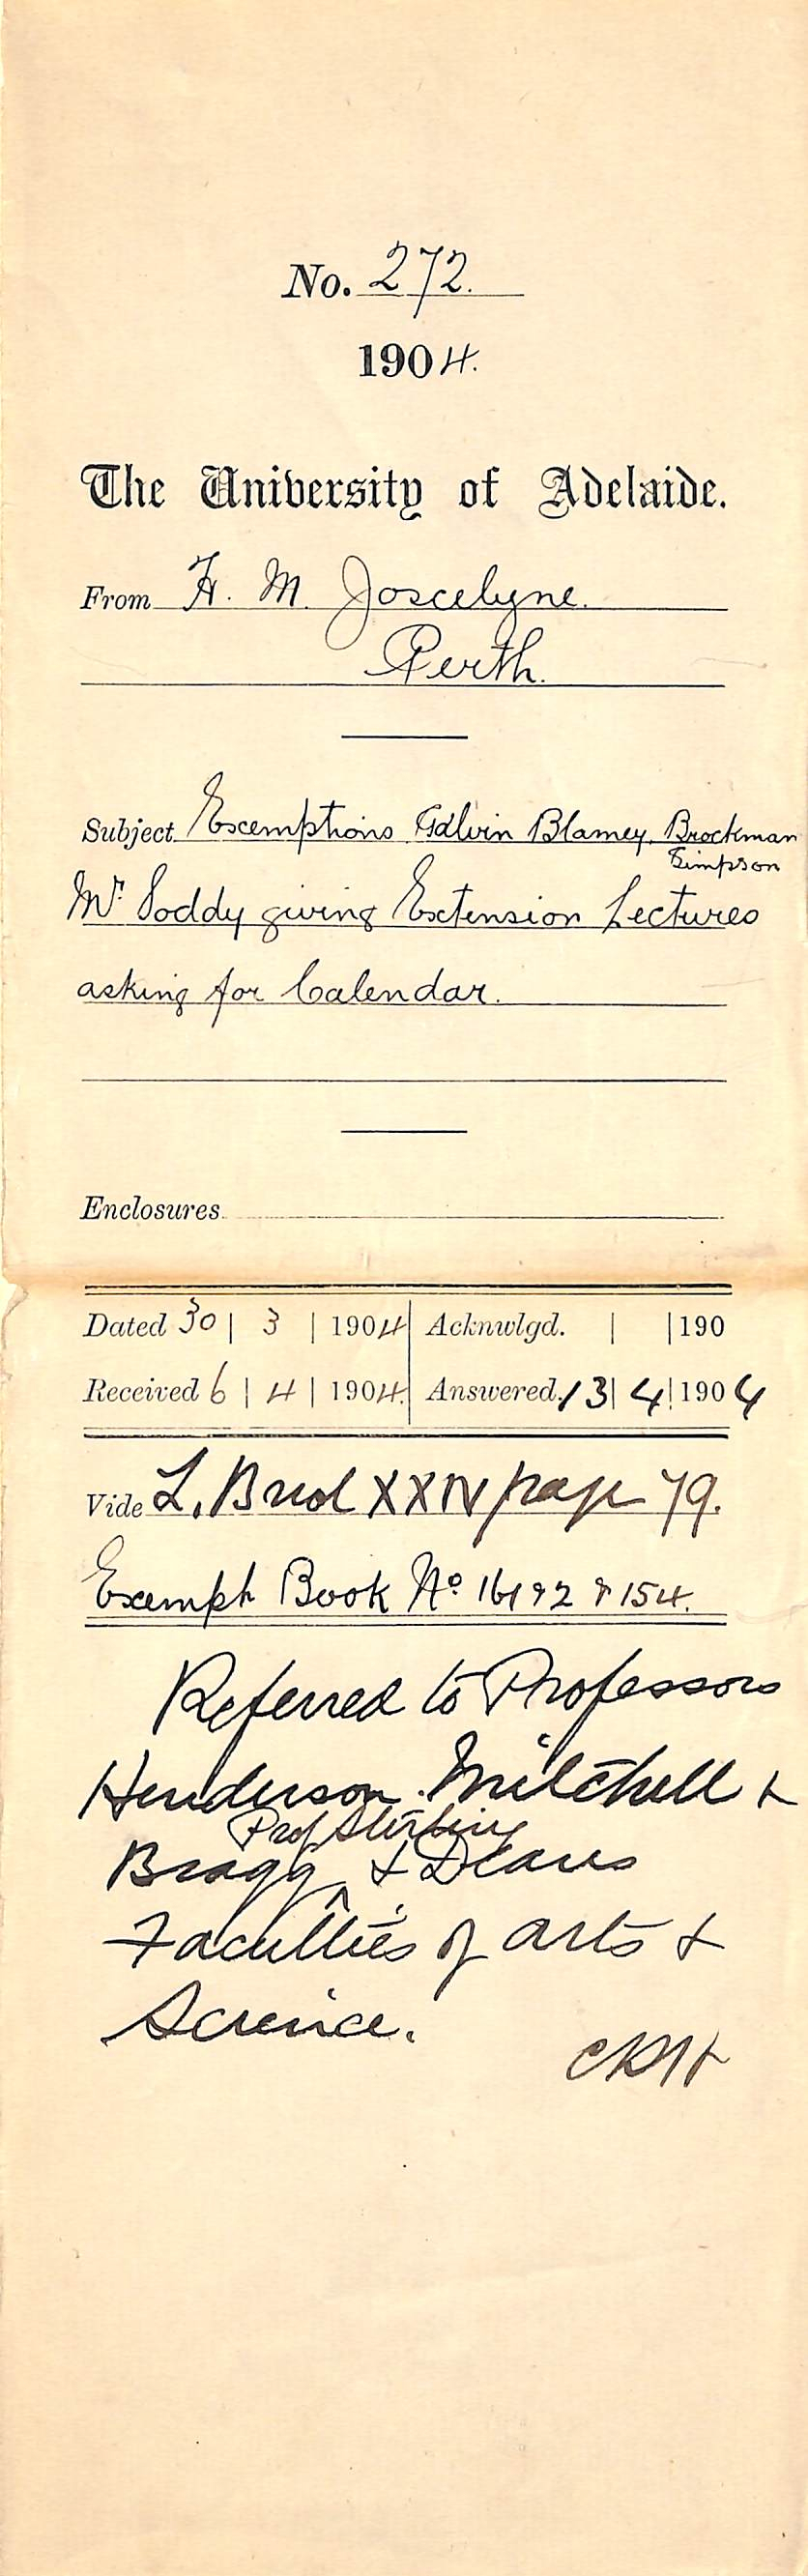 No. 272.
1904.
The University of Adelaide.
From H. M. Joscelyne.
Perth.
Subject Exemptions Galvin Blamey. Brockman
Simpson
Mr. Soddy giving Extension Lectures
asking for Calendar.
Enclosures
Dated 30 | 3 | 1904 Acknwlgd. | | 190
Received 6 | 4 | 1904. Answered. 13 | 4 | 1904
Vide L. XXIV page 79.
Exempt Book No. & 154.
Referred to Professors
Henderson. Mitchell &
Prof Stirling
Bragg ^ & Deans
Faculties of Arts &
Science.